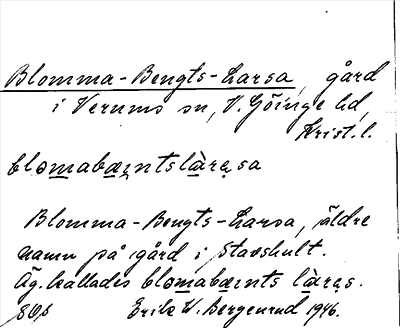 Blomma-Bengts-Larsa, gård
i Verums sn, V. Göinge hd,
Krist. l.
blomabæntslàresa
Blomma-Bengts-Larsa, äldre
namn på gård i Stavshult.
Äg. kallades blomabænts làres.
Erik W. Bergenrud 1946.